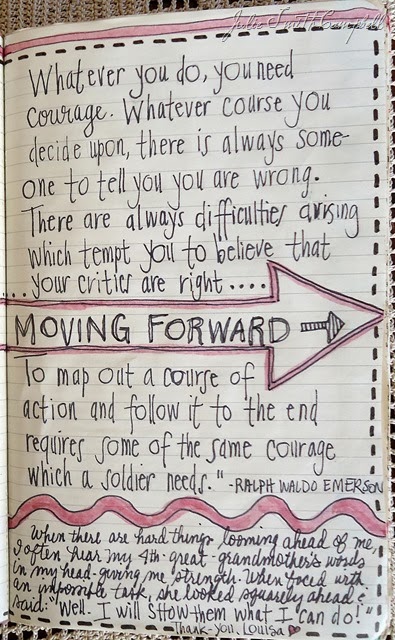 Julie Smith Campbell
Whatever you do, you need
courage. Whatever course you
decide upon, there is always some-
one to tell you you are wrong.
There are always difficulties arising
which tempt you to believe that
...your critics are right....
MOVING FORWARD
To map out a course of
action and follow it to the end
requires some of the same courage
which a soldier needs." -RALPH WALDO EMERSON
When there are hard things looming ahead of me,
I often hear my 4th-great-grandmother's words
in my head-giving me strength. When faced with
an impossible task, she looked squarely ahead &
said: "Well. I will show them what I can do!"
Thank-you, Louisa